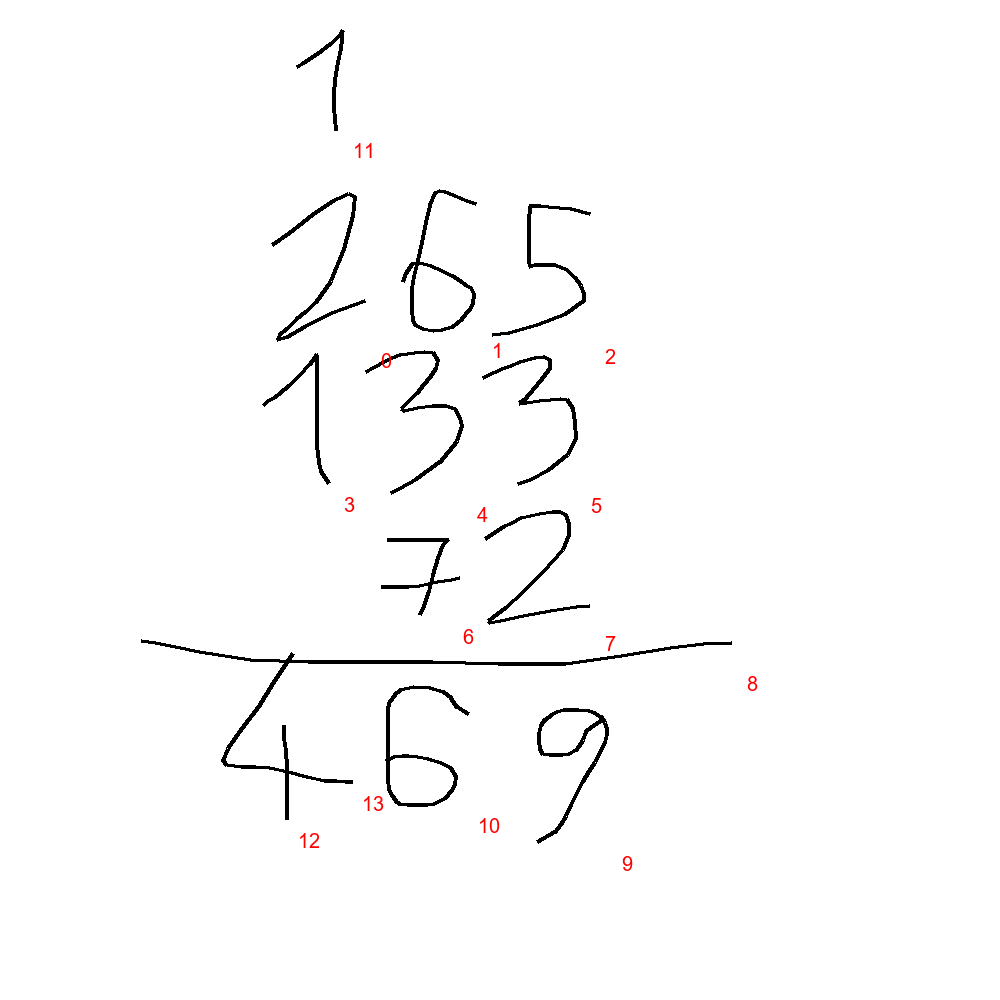 1
11
265
0 1 2
133
3 4 5
72
6 7
8
469
13 10
12 9